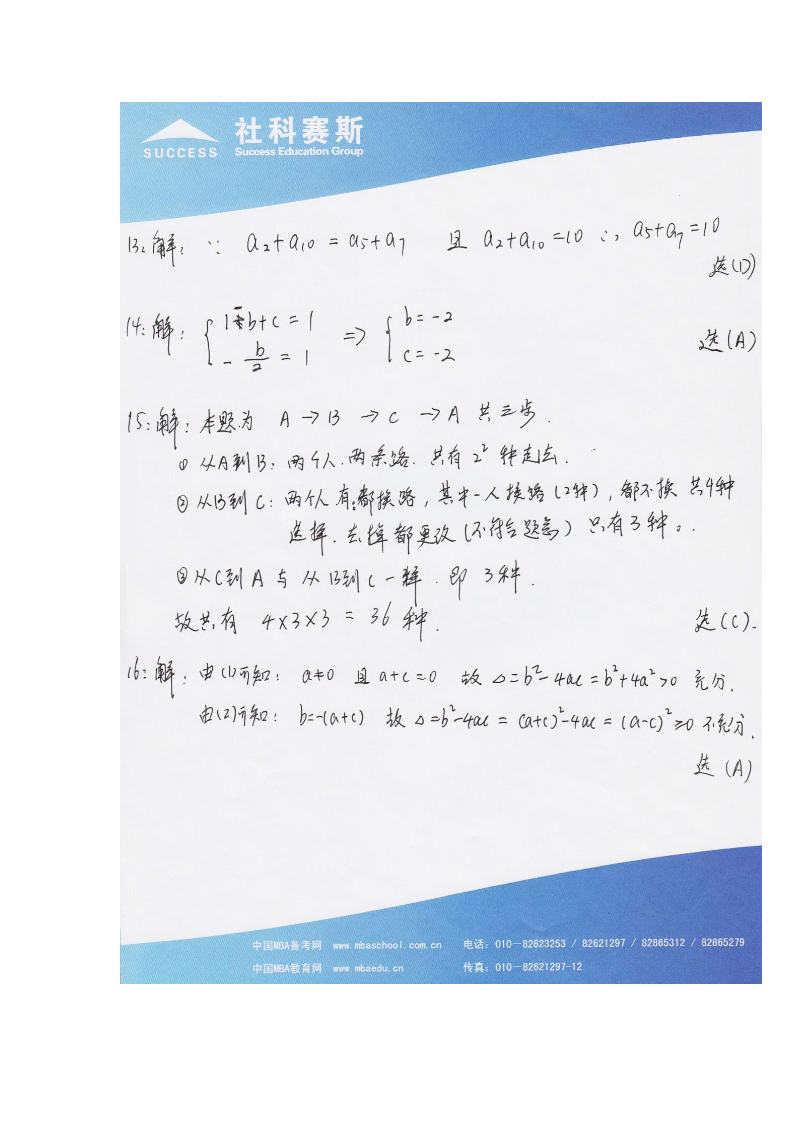 社科赛斯
SUCCESS
Success Education Group
13:解: ∵ a₂+a₁₀ = a₅+a₇ 且 a₂+a₁₀=10 ∴ a₅+a₇=10
选(D)
14:解: { 1-b+c = 1 => { b=-2
-b/2 = 1 c=-2
选(A)
15:解:本题为 A→B→C→A 共三步.
① 从A到B: 两个人.两条路.共有 2² 种走法.
② 从B到C: 两个人有:都换路,其中一人换路(2种),都不换 共4种
选择.去掉都更改(不符合题意) 只有3种。
③ 从C到A 与 从B到C一样.即 3种.
故共有 4×3×3 = 36 种.
选(C).
16:解:由(1)可知: a≠0 且 a+c=0 故 △=b²-4ac=b²+4a²>0 充分.
由(2)可知: b=-(a+c) 故 △=b²-4ac=(a+c)²-4ac=(a-c)²≥0 不充分.
选(A)
中国MBA备考网 www.mbaschool.com.cn 电话:010-82623253 / 82621297 / 82865312 / 82865279
中国MBA教育网 www.mbaedu.cn 传真:010-82621297-12